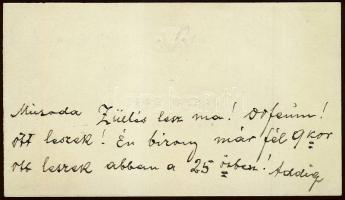 Züllés lesz ma! Orfeum!
Ott leszek! Én bizony már fél 9 kor
ott leszek abban a 25 ösben! Addig